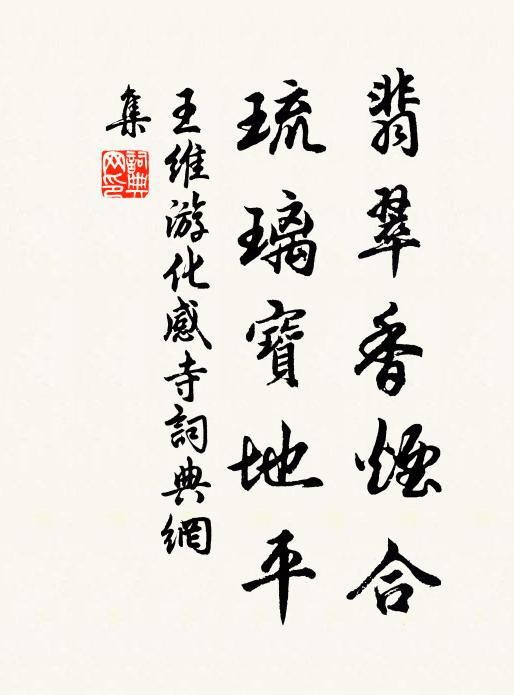 翡翠香煙合
琉璃寶地平
王維游化感寺詞典網
集
詞典
网印